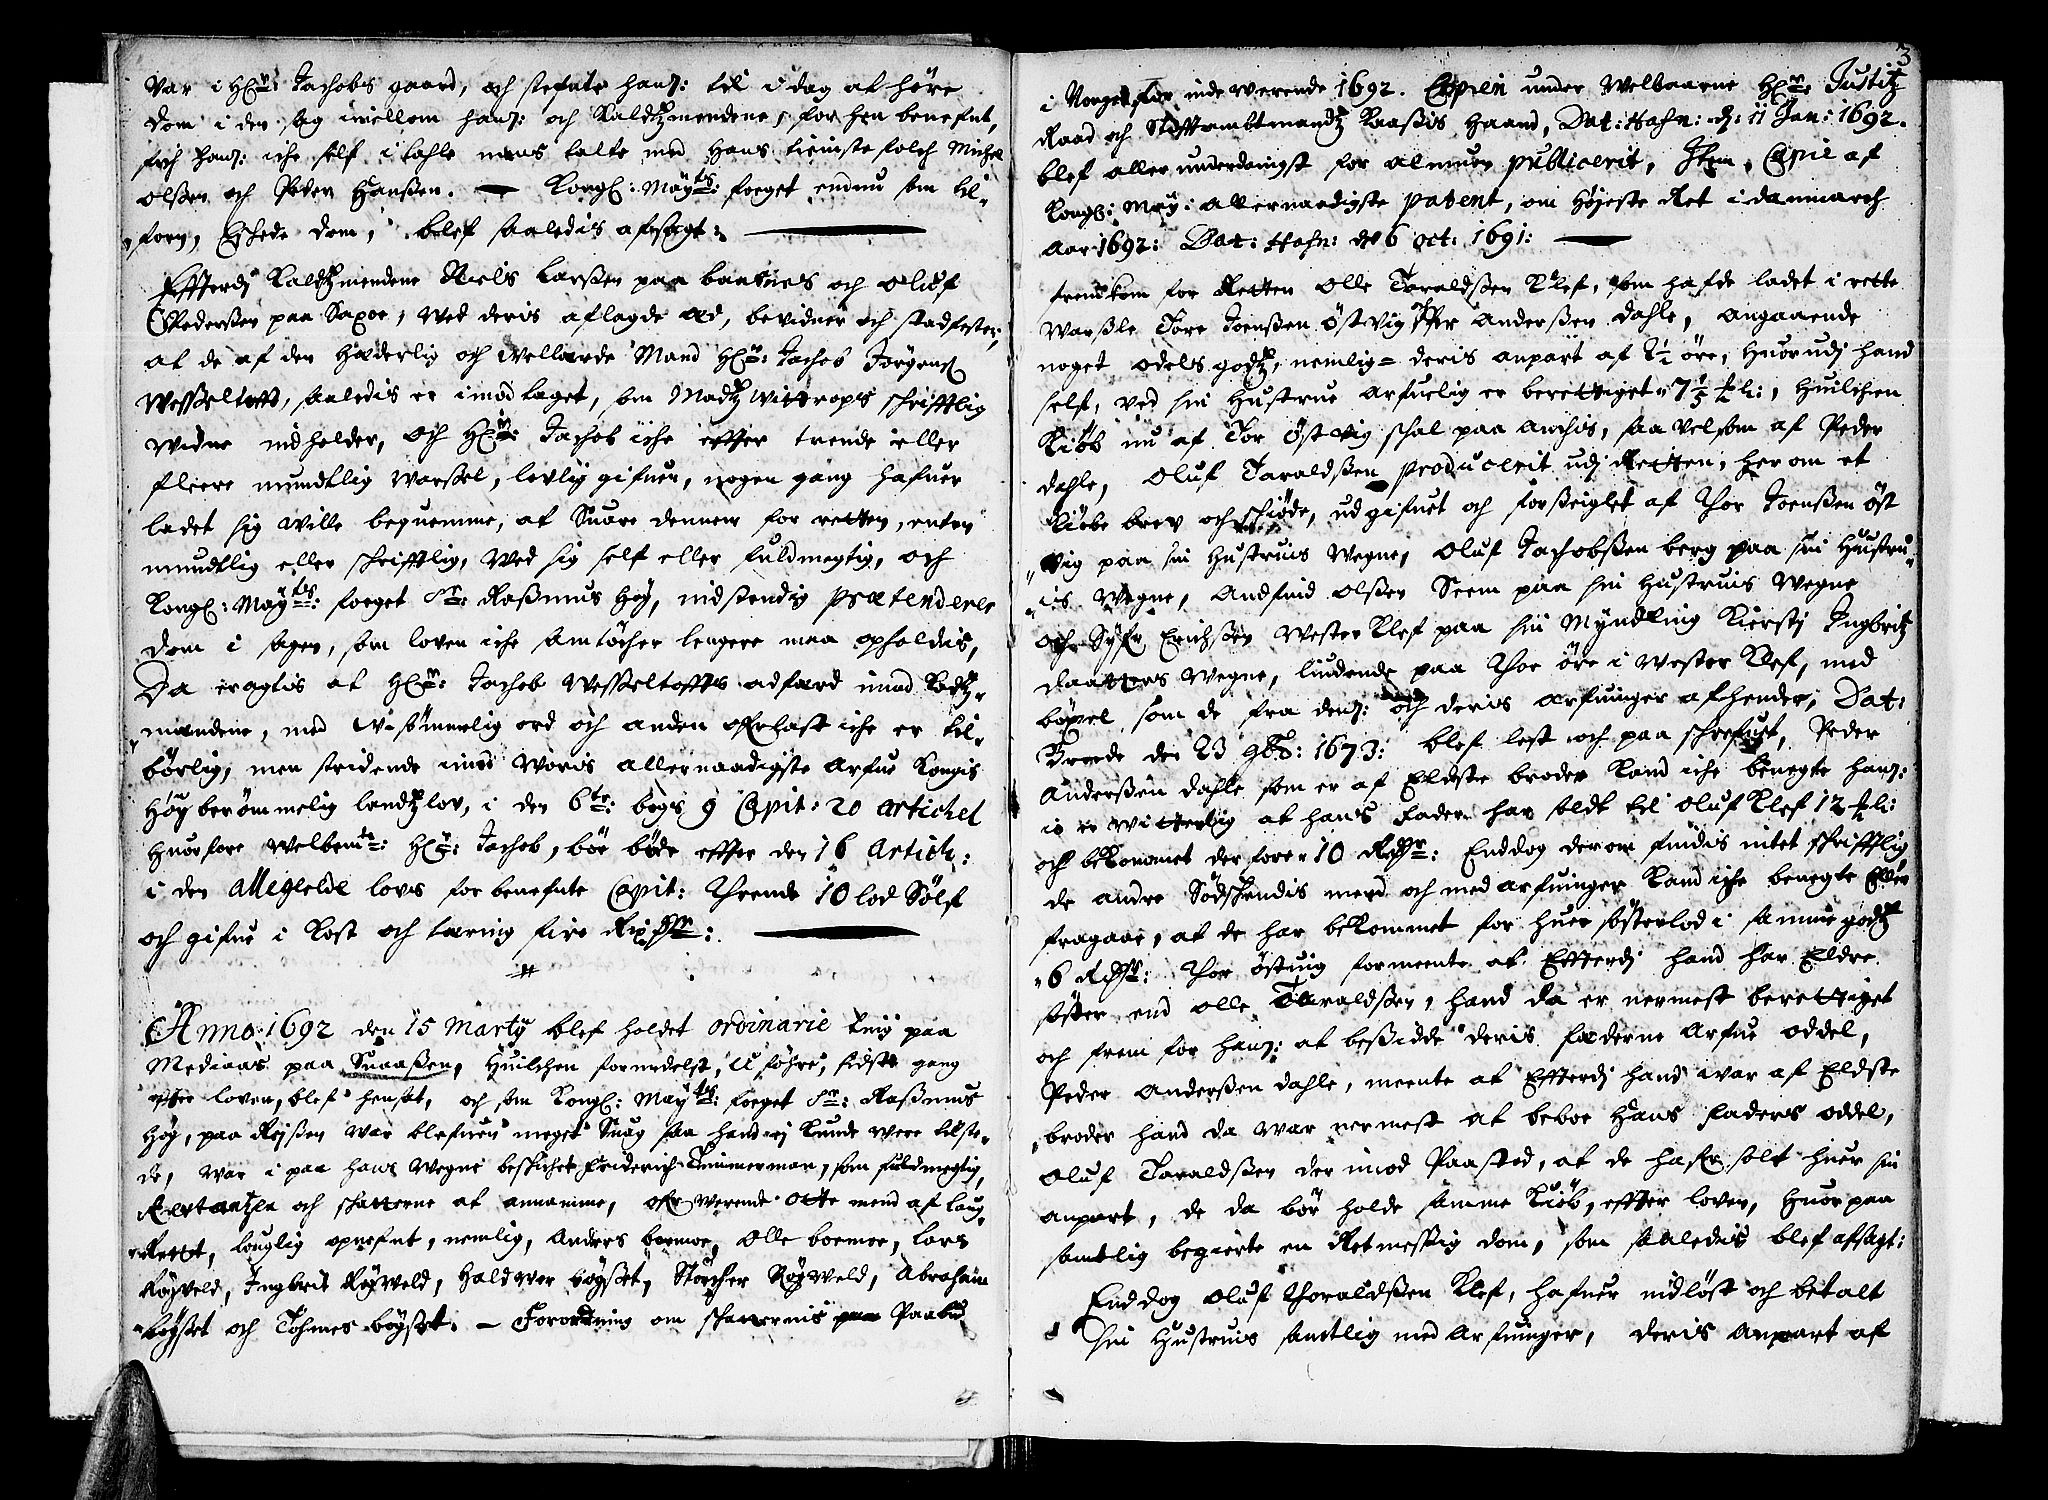 var i Hr: Jachobs gaard, och stefnte hanß: til i dag at höre
dom i den sag imellom hanß: och Kaldtzmendene, forhen benefnt,
fich hanß: iche self i tahle mens talte med hans tieniste folch Michel
Olßen och Peder Hanßen. — Kongl: Mayts: foeget endnu som til-
forn, Eschede dom, blef saaledis afsagt:
Effterdj Kaldtzmendene Niels Larßen paa baatnes och Oluf
Pederßen paa Saxoe, med deris aflagde æd, bevidner och stadfester,
at de af den Hæderlig och Wellærde Mand Hr: Jachob Jörgens
Wesseltoft, saaledis er imodtaget, som Madtz Wittrops schrifftlig
Widne indholder, och Hr: Jachob iche effter trende eller
fleere mundtlig warßel, lovlig gifuen, nogen gang hafuer
ladet sig wille beqvemme, at Suare dennem for retten, enten
mundtlig eller schrifftlig, Ved sig self eller fuldmegtig, och
Kongl: Mayts: foeget Sr: Raßmus Høy, indstendig prætenderer
dom i sagen, som loven iche samtöcher lengere maa opholdis,
Da eragtis at Hr: Jachob Wesseltoffts adfærd imod Kaldtz-
mændene, med U-sömmelig ord och anden ofverlast iche er til-
börlig, men stridende imod Voris allernaadigste Arfue Kongis
Höyberömmelig landtzlov, i den 6te: bogs 9 Capit: 20 artichel
Huorfore Welbemte: Hr: Jachob, bör böde effter den 16 Artich:
i den allegerede lovs forbenefnte Capit: Thrende 10 lod Sölf
och gifue i Kost och tæring fire Rixdlr:
Anno 1692 den 15 Marty blef holdet ordinarie ting paa
Mediaas paa Snaaßen, Huilchen formedelst, U föhre, sidste gang
efter loven, blef hensat, och som Kongl: Mayts: foeget Sr: Raßmus
Høy, paa Reyßen war blefuen meget Suag saa hand ej kunde were tilste-
de, war i paa hans Wegne beschichet Friderich Timmerman, som fuldmegtig,
Restantzen och schatterne at annamme, ofverwerende otte mend af laug-
Rettet, louglig opnefnt, nemlig, Anders boemoe, Olle boemoe, Lars
Röyveld, Ingbrit Röyveld, Haldwor bøgset, Störcher Röyveld, Abraham
bøgset och Tohmes bøgset. — Forordning om schatternis Paabud
3
i Norge for inde werende 1692. Copien under Welbaarne Hr: Justitz
Raad och Stifftambtmandtz Kaaßis Haand, Dat: Hafn: d: 11 Jan: 1692.
blef aller underdanigst for almuen publicerit, Item, Copie af
Kongl: May: allernaadigste patent, om Höjeste Ret i danmarch
Aar 1692: Dat: Hafn: d 6 oct: 1691:
fremkom for Retten Olle Taraldßen Klef, som hafde ladet i rette
Warsle Tore Joenßen östvig Peder Anderßen Dahle, angaaende
noget odels godtz, nemlig deris anpart af 2½ öre, Huorudj hand
self, ved sin Hustrue arfuelig er berettiget 7⅕ mkl:, Huilchen
Kiöb nu af Tor östvig schal paa anchis, saa vel som af Peder
dahle, Oluf Taraldßen producerit udj Retten, herom et
Kiöbe brev och schiöde, udgifuet och forseiglet af Thor Joenßen öst
vig paa sin Hustruis Wegne, Oluf Jachobßen berg paa sin Hustru-
is Wegne, Andfind Olßen Seem paa sin Hustruis Wegne
och Syfr Erichßen Wester Klef paa sin Myndling Kiersti Ingbritz
daatters Wegne, liudende paa Thoe öre i Wester Klef, med
böxel som de fra denß: och deris arfuinger afhender, Dat:
Brede den 23 9br: 1673: blef lest och paa schrefuet, Peder
Anderßen dahle som er af Eldste broder Kand iche benegte hanß:
io er witterlig at hans Fader har soldt til Oluf Klef 12 mkli:
och bekommet derfore 10 Rdlr: Enddog derom findis intet schrifftlig
de andre Södskendis mend och med arfuinger Kand iche benegte eller
fragaae, at de har bekommet for huer söster lod i samme godtz
6 Rdlr: Thor östvig formeente at Effterdj hand har Eldre
söster end Olle Taraldßen, hand da er nermest berettiget
och frem for hanß: at beßidde deris fæderne Arfue oddel,
Peder Anderßen dahle, meente at Effterdj hand war af Eldste
broder hand da war nermest at beboe Hans Faders oddel,
Oluf Taraldßen der imod Paastod, at de hafr solt huer sin
anpart, de da bör holde samme Kiöb, effter loven, Huorpaa
samtlig begierte en Retmessig dom, som saaledis blef afsagt:
Enddog Oluf Thoraldßen Klef, hafuer indlöst och betalt
sin Hustruis samtlig med Arfuinger, deris Anpart af